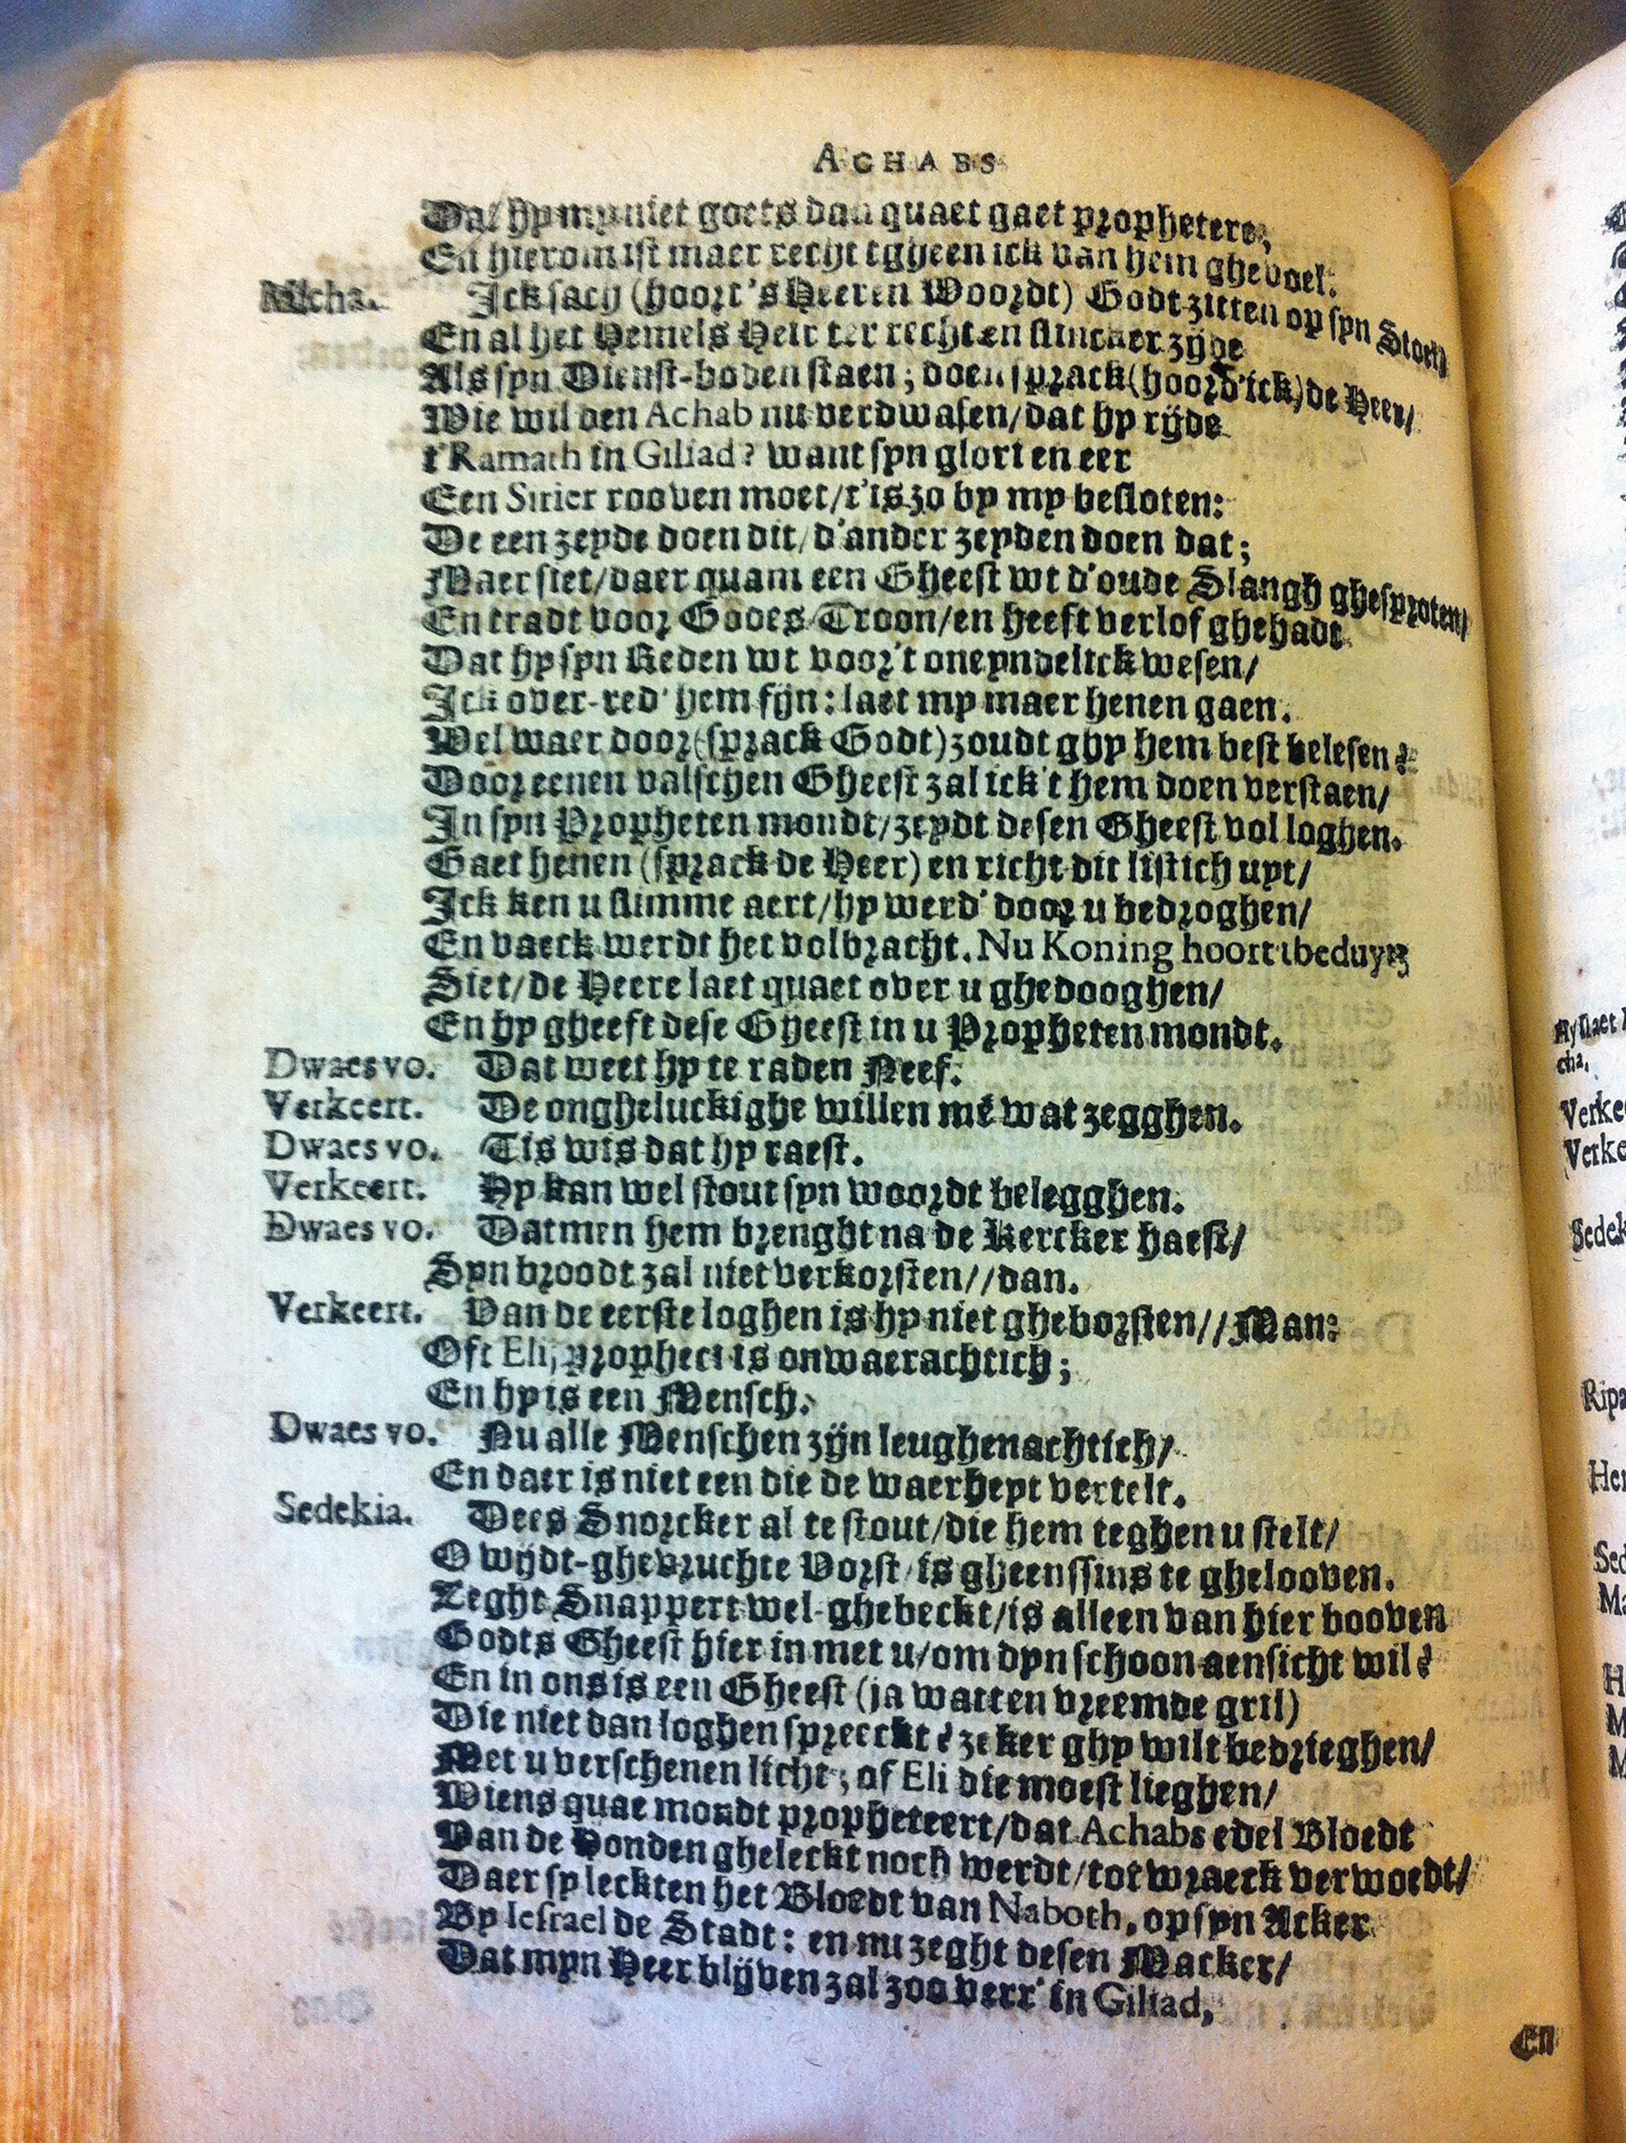 ACHABS
Dat hy my niet goets dan quaet gaet propheteren,
En hierom ist maer recht tgheen ick van hem ghevoel.
Micha. Ick sach (hoort 's Heeren Woordt) Godt zitten op syn Stoel,
En al het Hemels Heir ter rechten slincker zijde
Als syn Dienst-boden staen; doen sprack (hoord' ick) de Heer/
Wie wil den Achab nu verdwasen/ dat hy rijde
t'Ramath in Giliad? want syn glori en eer
Een Sirier rooven moet/ t'is zo by my besloten:
De een zeyde doen dit/ d'ander zeyden doen dat;
Maer siet/ daer quam een Gheest wt d'oude Slangh ghesproten/
En tradt voor Godes Troon/ en heeft verlof ghehadt
Dat hy syn Reden wt voor't oneyndelick wesen/
Ick over-red' hem fijn: laet my maer henen gaen.
Wel waer door (sprack Godt) zoudt ghy hem best belesen?
Door eenen valschen Gheest zal ick 't hem doen verstaen/
In syn Propheten mondt/ zeydt desen Gheest vol loghen.
Gaet henen (sprack de Heer) en richt dit listich uyt/
Ick ken u slimme aert/ hy werd' door u bedroghen/
En vaeck werdt het volbracht. Nu Koning hoort tbeduyt
Siet/ de Heere laet quaet over u ghedooghen/
En hy gheeft dese Gheest in u Propheten mondt.
Dwaes vo. Dat weet hy te raden Neef.
Verkeert. De ongheluckighe willen mé wat zegghen.
Dwaes vo. Tis wis dat hy raest.
Verkeert. Hy kan wel stout syn woordt belegghen.
Dwaes vo. Datmen hem brenght na de Kercker haest/
Syn broodt zal niet verkorsten// dan.
Verkeert. Van de eerste loghen is hy niet gheborsten// Man:
Oft Eli, prophect is onwaerachtich;
En hy is een Mensch.
Dwaes vo. Nu alle Menschen zijn leughenachtich/
En daer is niet een die de waerheyt vertelt.
Sedekia. Dees Snorcker al te stout/ die hem teghen u stelt/
O wijdt-ghevruchte Vorst/ is gheenssins te ghelooven.
Zeght Snappert wel-ghebeckt/ is alleen van hier booven
Godts Gheest hier in met u/ om dyn schoon aensicht wil?
En in ons is een Gheest (ja wat ten vreemde gril)
Die niet dan loghen spreeckt? zeker ghy wilt bedrieghen/
Met u verschenen licht; of Eli die moest lieghen/
Wiens quae mondt propheteert/ dat Achabs edel Bloedt
Van de Honden gheleckt noch werdt/ tot wraeck verwoedt/
Daer sy leckten het Bloedt van Naboth, op syn Acker
By Iesrael de Stadt: en nu zeght desen Macker/
Dat myn Heer blijven zal zoo verr' in Giliad,
En
Hy slaet
cha.
Verke
Verke
Sedek
Ripa
Her
Sed
Ma
H
M
M